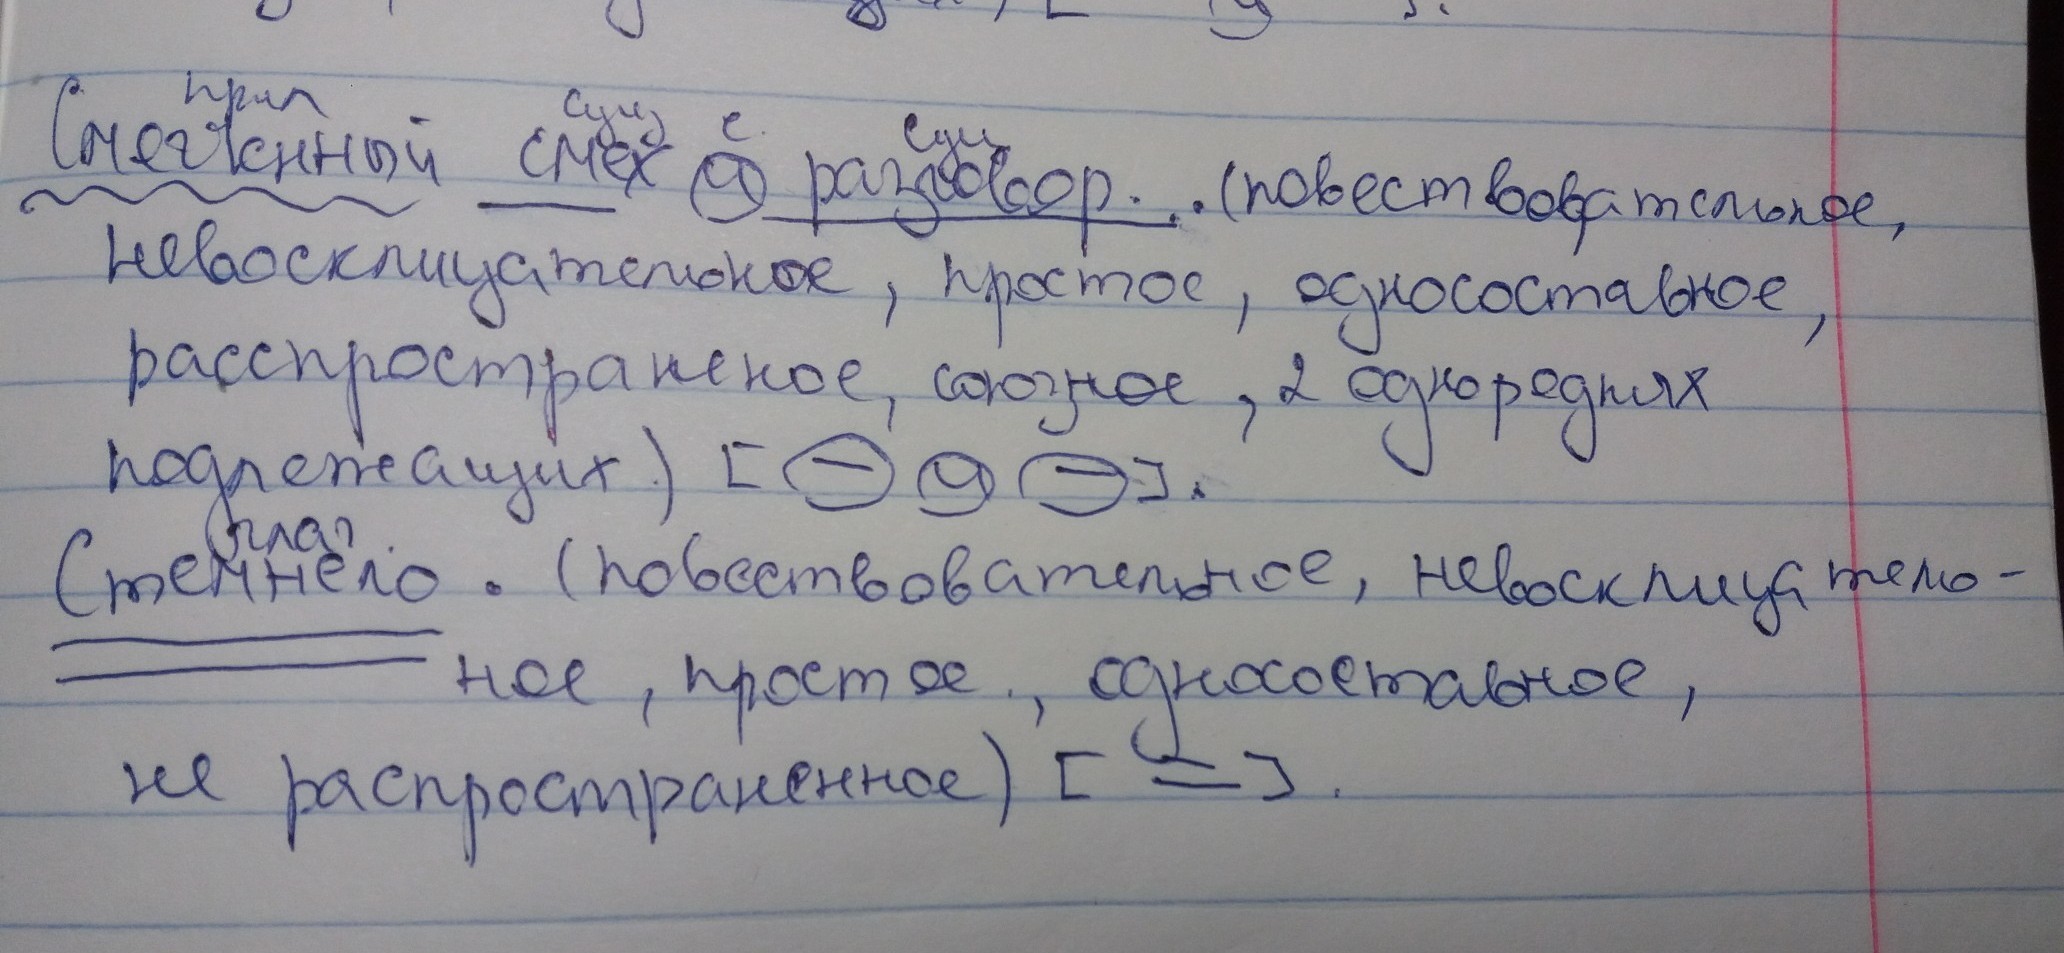 прил сущ с. сущ
Смегченный смех и разговор... (повествовательное,
невосклицательное, простое, односоставное,
расспространеное, союзное, 2 однородных
подлежащих) [ — и — ].
глаг.
Стемнело. (повествовательное, невосклицатель-
ное, простое, односоставное,
не распространенное) [ = ].